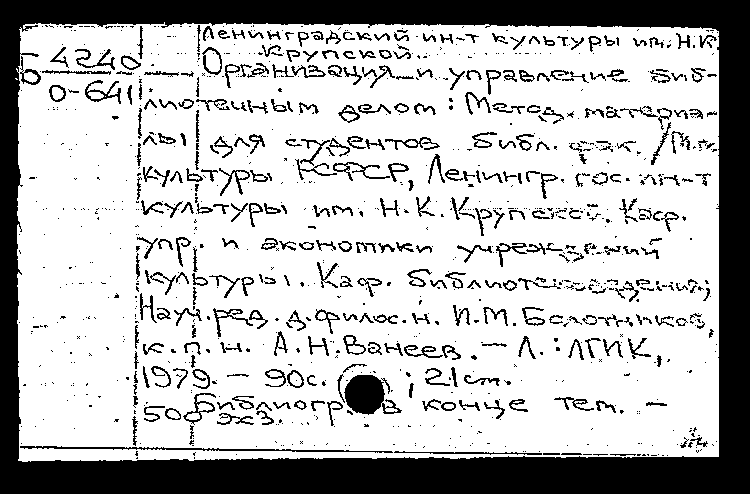 Ленинградский ин-т культуры им. Н.К.
Крупской.
Б 4240
0-641
Организация и управление биб-
лиотечным делом : Метод. материа-
лы для студентов библ. фак. / М-во
культуры РСФСР, Ленингр. гос. ин-т
культуры им. Н.К. Крупской. Каф.
упр. и экономики учреждений
культуры. Каф. библиотековедения;
Науч. ред. д. филос. н. И.М. Болотников,
к. п. н. А.Н. Ванеев. – Л. : ЛГИК,
1979. – 90с. ; 21 см.
Библиогр. в конце тем. –
500 экз.